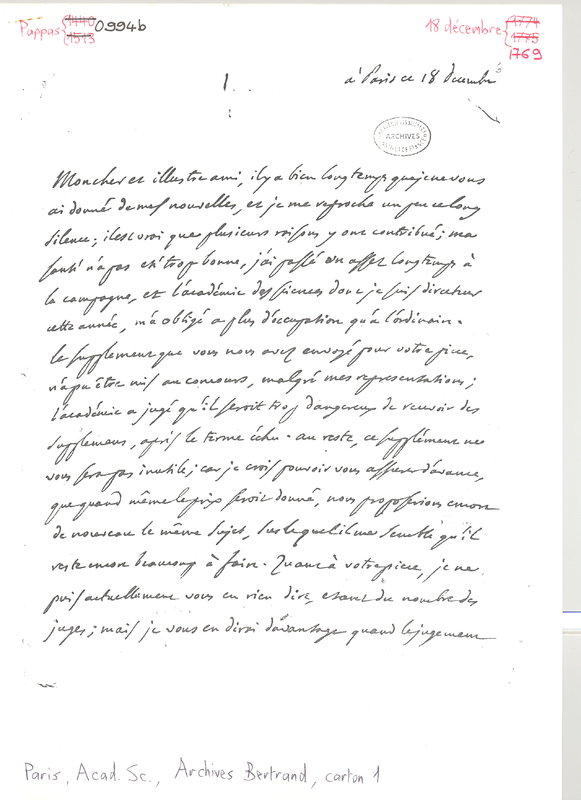 Pappas { 1440 1513 0994b
18 décembre { 1774 1775 1769
1.
à Paris ce 18 decembre
ARCHIVES
Mon cher et illustre ami, il y a bien longtemps que je ne vous
ai donné de mes nouvelles, et je me reproche un peu ce long
silence; il est vrai que plusieurs raisons y ont contribué; ma
santé n'a pas été trop bonne, j'ai passé un assez longtemps à
la campagne, et l'académie des sciences dont je suis directeur
cette année, m'a obligé a plus d'occupation qu'a l'ordinaire.
le supplement que vous nous avez envoyé pour votre piece,
n'a pu être mis au concours, malgré mes representations;
l'académie a jugé qu'il seroit trop dangereux de recevoir des
supplemens, après le terme échu. au reste, ce supplément ne
vous sera pas inutile; car je crois pouvoir vous assurer d'avance,
que quand même le prix seroit donné, nous proposerions encore
de nouveau le même sujet, sur lequel il me semble qu'il
reste encore beaucoup à faire. Quant à votre piece, je ne
puis actuellement vous en rien dire, etant du nombre des
juges; mais je vous en dirai davantage quand le jugement
Paris, Acad. Sc., Archives Bertrand, carton 1